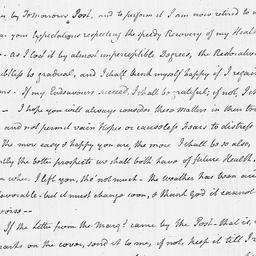 n by Tomorrows Post, and to perform it I am now retired to m
your Expectations respecting the speedy Recovery of my Healt
- As I lost it by almost imperceptible Degrees, the Restoration
doubtless be gradual, and I shall think myself happy if I regain
ms. If my Endeavours succeed, I shall be grateful; if not, I sh
- I hope you will always consider these matters in their tru
and not permit vain Hopes or causeless Fears to distress
The more easy & happy you are, the more I shall be so also,
ntly the better prospects we shall both have of future Health.
when I left you, tho' not much - the weather has been ex
favorable - but it must change soon, & thank God it cannot
worse --
If the Letter from the Marqs. came by the Post - that is,
marks on the cover, send it to me, if not, keep it till I